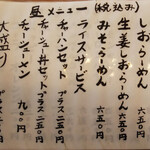 昼メニュー（税込み）
しおらーめん 六五〇
生姜しおらーめん 六五〇
みそらーめん 六五〇
ライスサービス
チャーハンセット プラス二五〇円
チャーシュー丼セット プラス二五〇円
チャーシューメン 九〇〇円
大盛り プラス